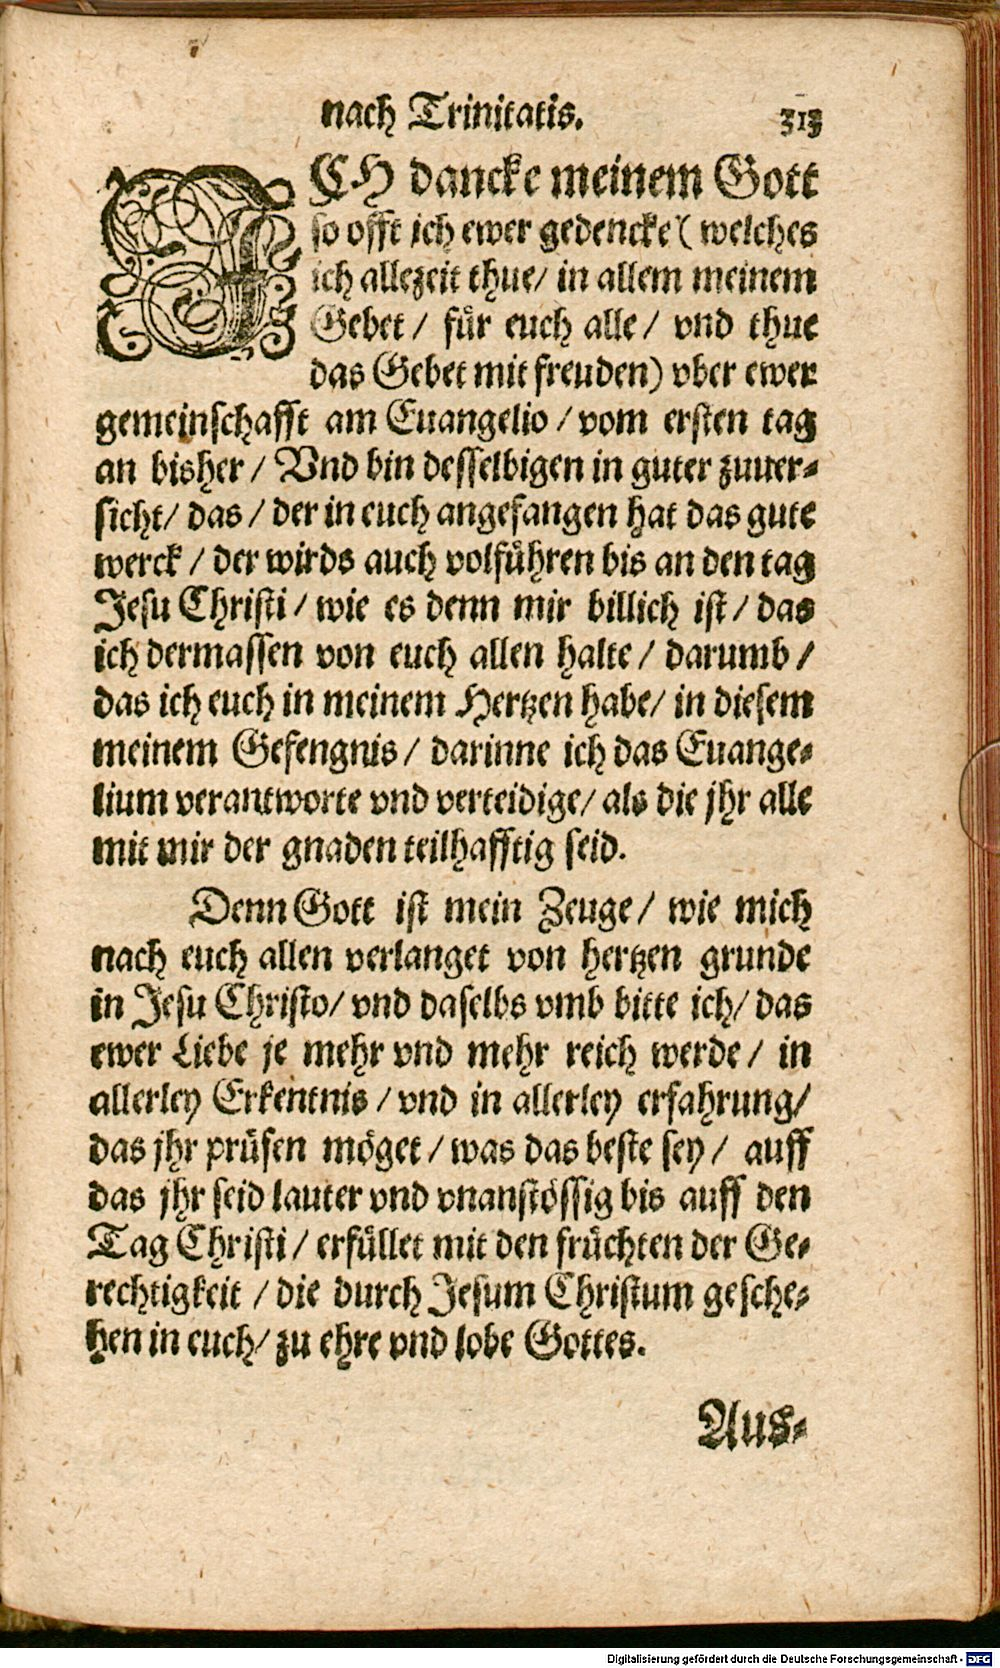 nach Trinitatis. 313
ICH dancke meinem Gott
so offt ich ewer gedencke (welches
ich allezeit thue/ in allem meinem
Gebet / für euch alle / vnd thue
das Gebet mit freuden) vber ewer
gemeinschafft am Euangelio / vom ersten tag
an bisher / Vnd bin desselbigen in guter zuuer-
sicht/ das / der in euch angefangen hat das gute
werck / der wirds auch volführen bis an den tag
Jesu Christi / wie es denn mir billich ist / das
ich dermassen von euch allen halte / darumb /
das ich euch in meinem Hertzen habe/ in diesem
meinem Gefengnis / darinne ich das Euange-
lium verantworte vnd verteidige/ als die jhr alle
mit mir der gnaden teilhafftig seid.
Denn Gott ist mein Zeuge / wie mich
nach euch allen verlanget von hertzen grunde
in Jesu Christo/ vnd daselbs vmb bitte ich/ das
ewer Liebe je mehr vnd mehr reich werde / in
allerley Erkentnis / vnd in allerley erfahrung/
das jhr prüfen möget / was das beste sey / auff
das jhr seid lauter vnd vnanstössig bis auff den
Tag Christi / erfüllet mit den früchten der Ge-
rechtigkeit / die durch Jesum Christum gesche-
hen in euch/ zu ehre vnd lobe Gottes.
Aus-
Digitalisierung gefördert durch die Deutsche Forschungsgemeinschaft - DFG